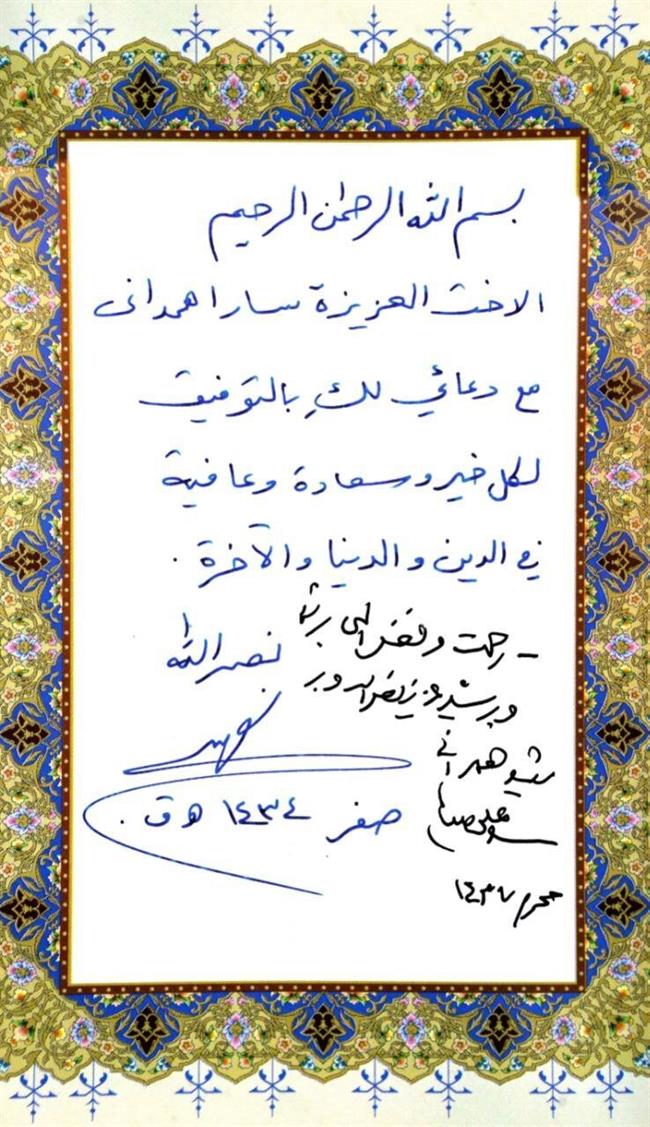 بسم الله الرحمن الرحيم
الاخت العزيزة سارا همدانی
مع دعائي لكِ بالتوفيق
لكل خير وسعادة وعافية
في الدين والدنيا والآخرة .
نصر الله
صفر ١٤٣٤ ه ق .
- رحمت و فضل الهی بر شما
و بر شهید عزیز نصرالله و بر
شهید همدانی
محرم ١٤٣٧